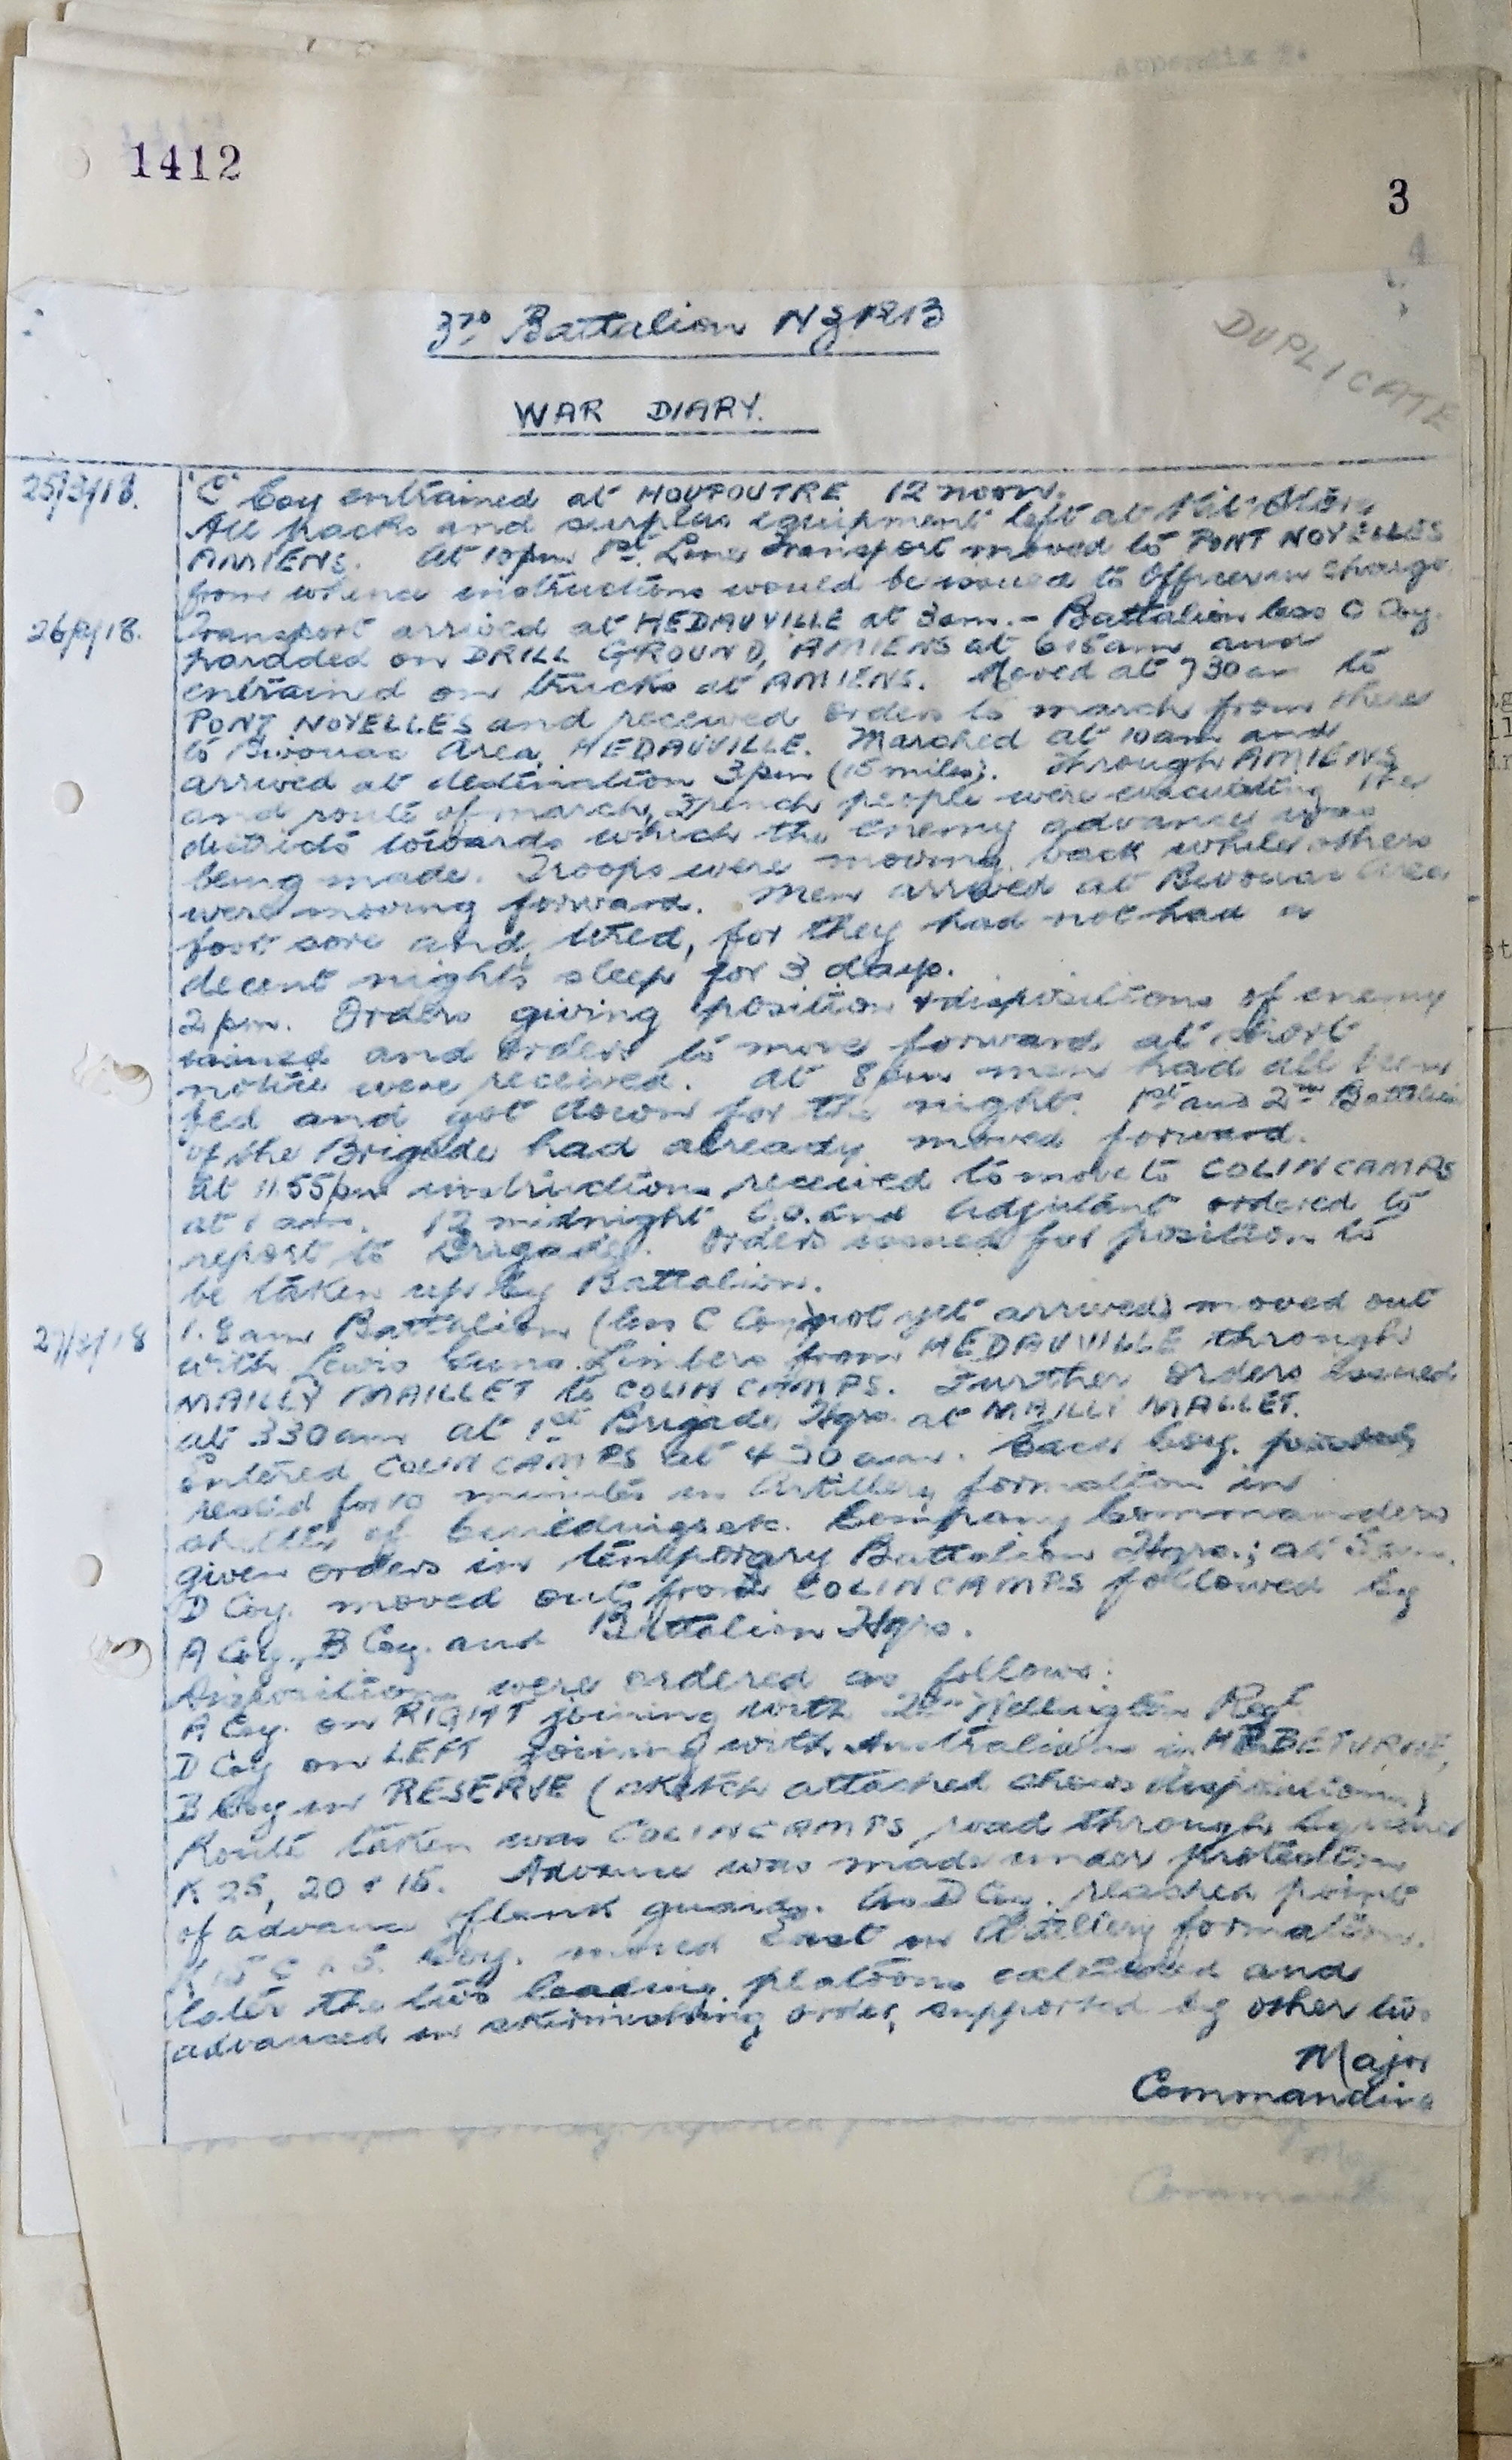 Appendix
1412
3
4
3RD Battalion NZRB
DUPLICATE
WAR DIARY.
25/3/18. "C" Coy entrained at HOUPOUTRE 12 noon.
All packs and surplus equipment left at
AMIENS. At 10pm 1st. Line Transport moved to PONT NOYELLES
from whence instructions would be issued to Officer in charge.
26/3/18. Transport arrived at HEDAUVILLE at 3am. - Battalion less C Coy.
paraded on DRILL GROUND, AMIENS at 615am and
entrained on trucks at AMIENS. Moved at 730am to
PONT NOYELLES and received orders to march from there
to Bivouac Area, HEDAUVILLE. Marched at 10am and
arrived at destination 3pm (15 miles). Through AMIENS
and route of march, French people were evacuating the
districts towards which the enemy advance was
being made. Troops were moving back while others
were moving forward. Men arrived at Bivouac Area
foot sore and tired, for they had not had a
decent night's sleep for 3 days.
2 pm. Orders giving position & dispositions of enemy
issued and orders to move forward at short
notice were received. At 8pm men had all been
fed and got down for the night. 1st and 2nd Battalion
of the Brigade had already moved forward.
At 11.55pm instructions received to move to COLINCAMPS
at 1 am. 12 midnight C.O. and Adjutant ordered to
report to Brigade. Orders issued for position to
be taken up by Battalion.
27/3/18 1.8am Battalion (less C Coy not yet arrived) moved out
with Lewis Guns Limbers from HEDAUVILLE through
MAILLY MAILLET to COLINCAMPS. Further orders issued
at 330am at 1st Brigade Hqrs. at MAILLY MALLET.
Entered COLINCAMPS at 430am. Each Coy.
rested for 10 minutes in Artillery formation in
shelter of buildings etc. Company Commanders
given orders in temporary Battalion Hqrs.; at 5am.
D Coy. moved out from COLINCAMPS followed by
A Coy., B Coy. and Battalion Hqrs.
Dispositions were ordered as follows:
A Coy. on RIGHT joining with 2nd Wellington Regt
D Coy on LEFT joining with Australians in HEBETURNE,
B Coy in RESERVE (sketch attached shows dispositions)
Route taken was COLINCAMPS road through squares
K 25, 20 & 15. Advance was made under protection
of advance flank guards. As D Coy. reached point
K 15 Coy. moved East in Artillery formation.
later the two leading platoons extended and
advanced in skirmishing order, supported by other two
Major
Commanding
Commanding